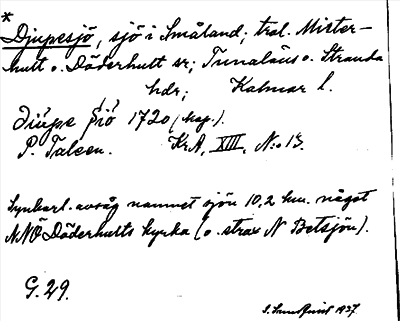 * Djupesjö, sjö i Småland; trol. Mister-
hult o. Döderhult sr; Tunaläns o. Stranda
hdr; Kalmar l.
Diüpe Siö 1720 (Map.).
P. Taleen. KrA, XIII, N:o 13.
Synbarl. avsåg namnet sjön 10,2 km. något
NNÖ Döderhults kyrka (o. strax N Betsjön).
G. 29.
1937